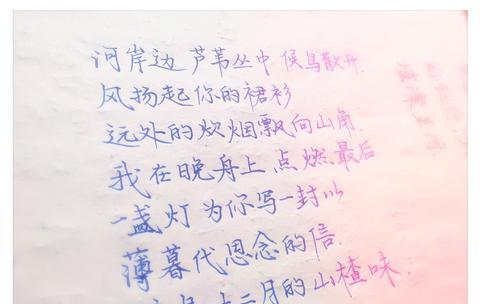 河岸边 芦苇丛中 候鸟散开
风扬起你的裙衫
远处的炊烟飘向山角
我在晚舟上点燃最后
一盏灯 为你写一封以
薄暮代思念的信.
十二月的山楂味.